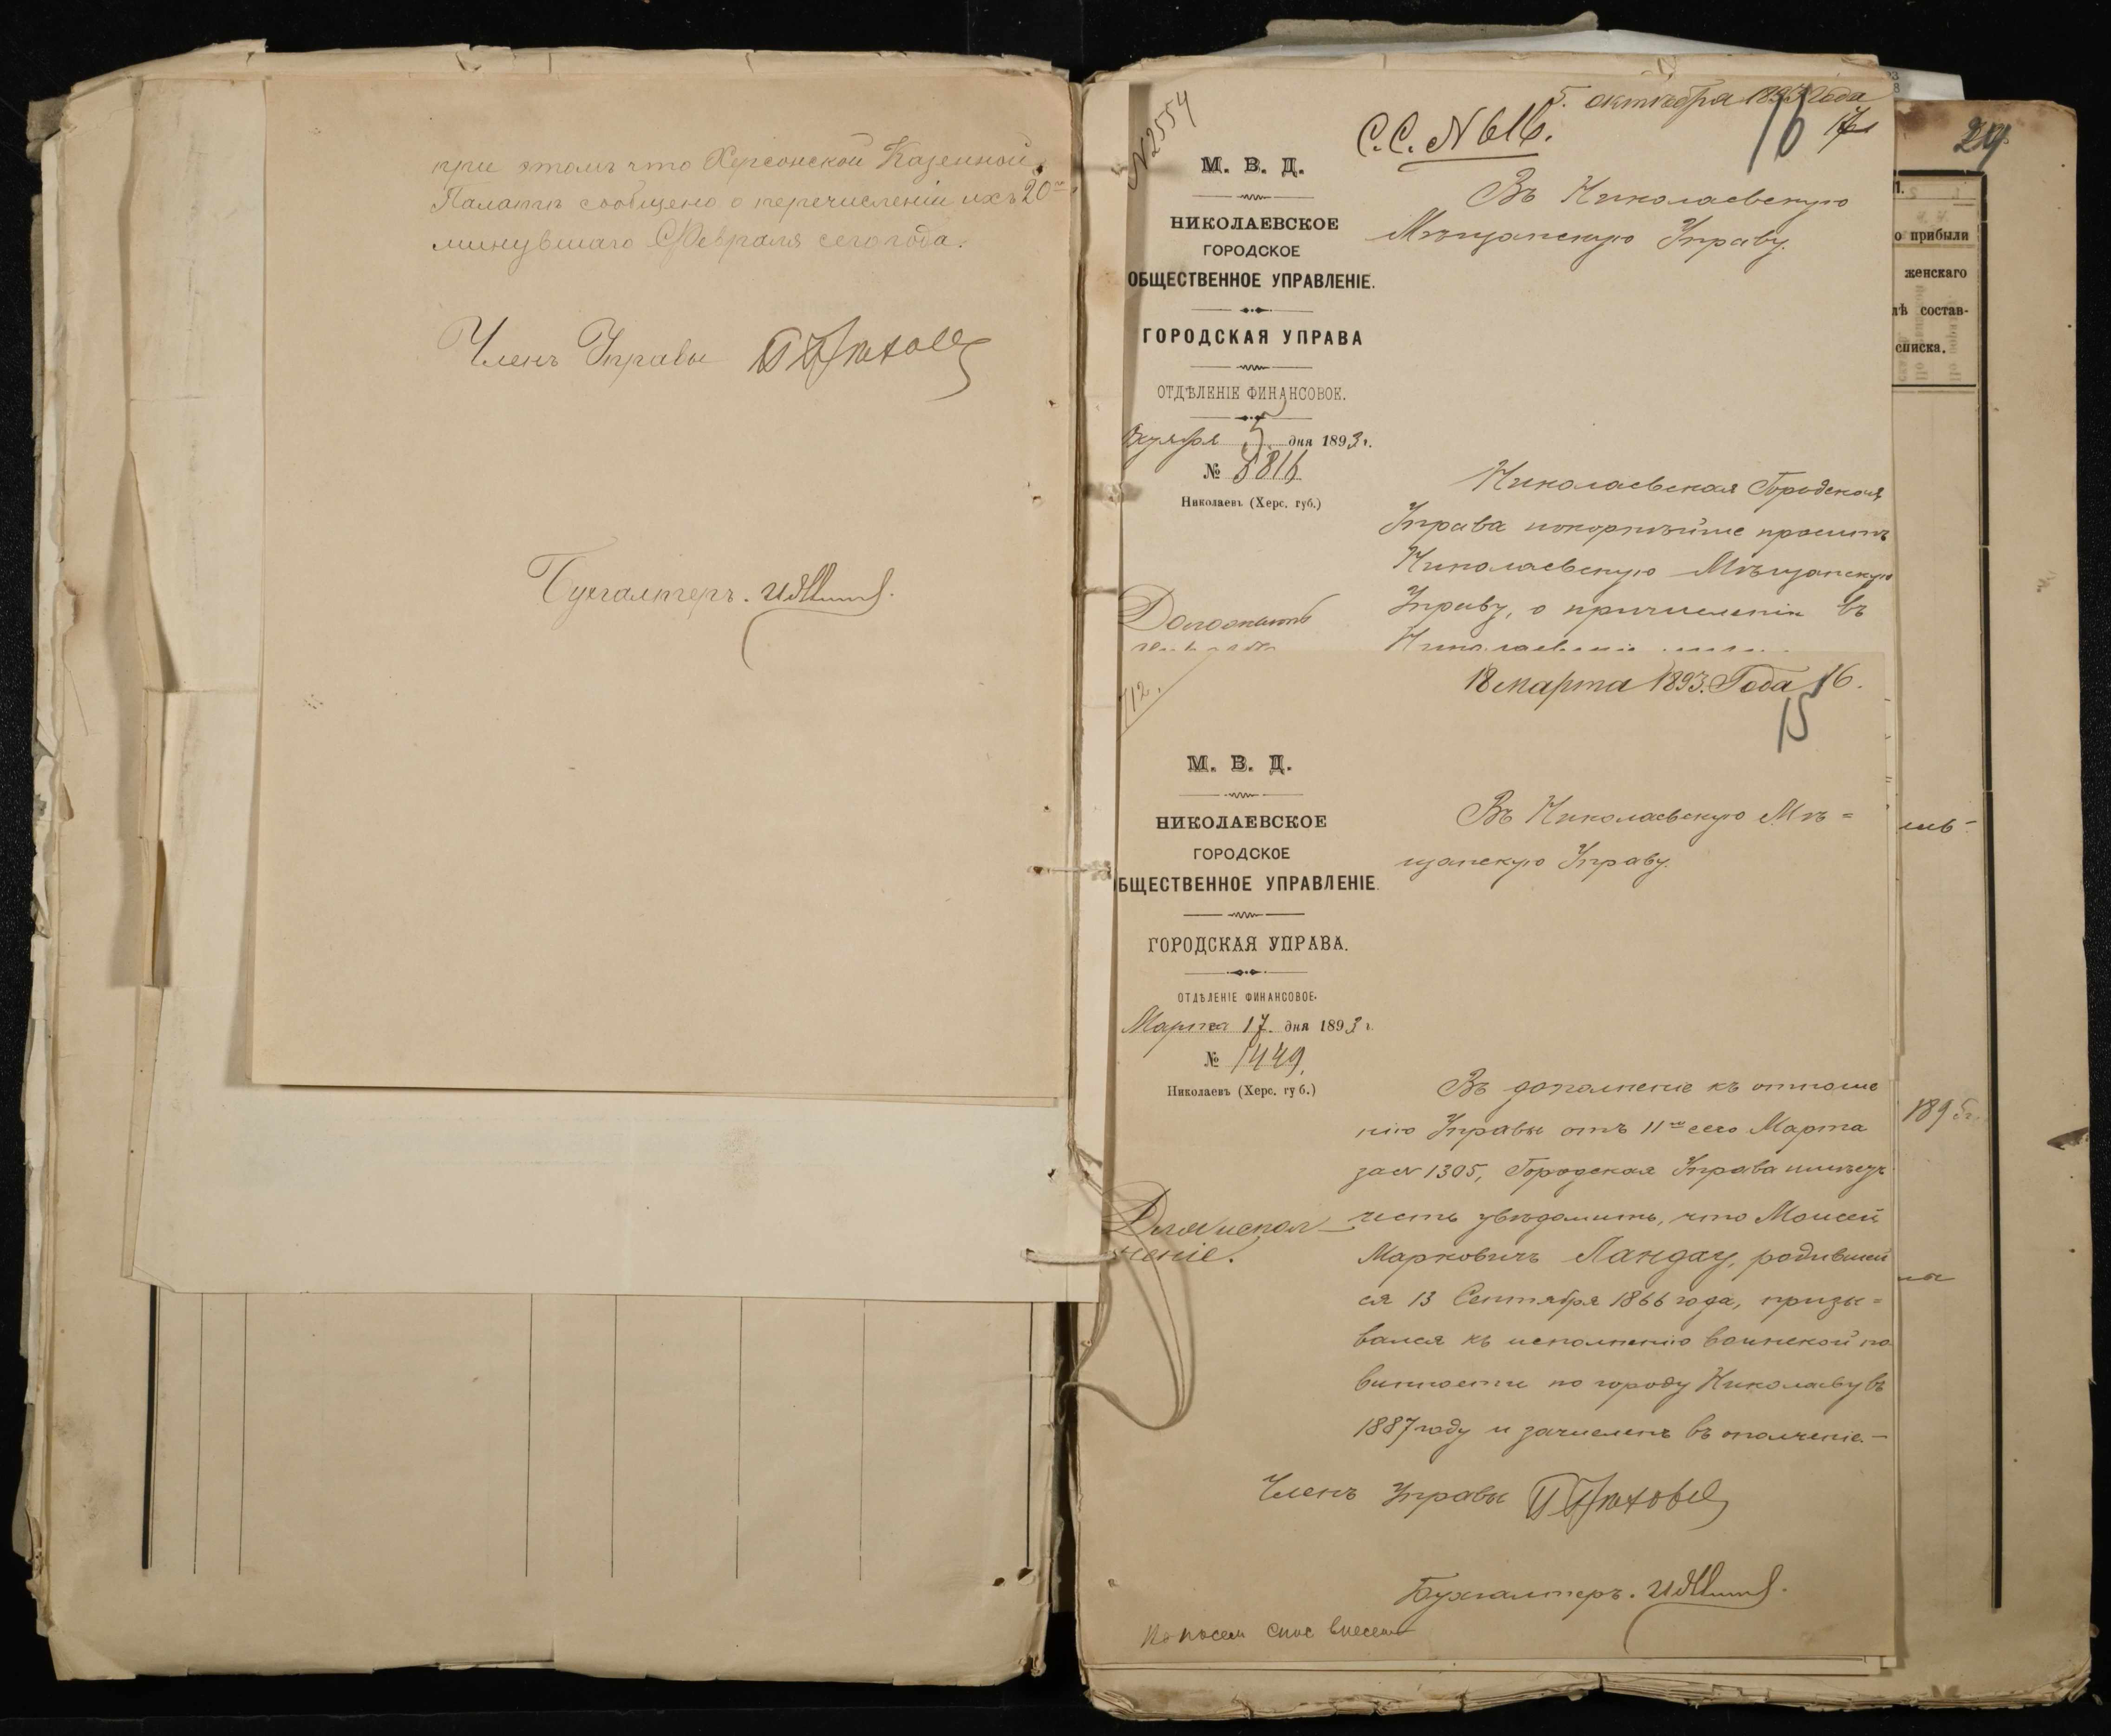 при этомъ что Херсонской Казенной
Палатѣ сообщено о перечисленіи ихъ 20го
минувшаго Февраля сего года.
Членъ Управы
Бухгалтеръ.
№2554
5. октября 1893 Года
С.С. № 616.
16
М. В. Д.
НИКОЛАЕВСКОЕ
ГОРОДСКОЕ
ОБЩЕСТВЕННОЕ УПРАВЛЕНІЕ.
ГОРОДСКАЯ УПРАВА
ОТДѢЛЕНІЕ ФИНАНСОВОЕ.
Октября 5 дня 1893 г.
№ 5816
Николаевъ (Херс. губ.)
Въ Николаевскую
Мѣщанскую Управу.
Николаевская Городская
Управа покорнѣйше проситъ
Николаевскую Мѣщанскую
Управу, о причисленіи въ
Доложить
712.
18 марта 1893. Года 16.
15
М. В. Д.
НИКОЛАЕВСКОЕ
ГОРОДСКОЕ
БЩЕСТВЕННОЕ УПРАВЛЕНІЕ.
ГОРОДСКАЯ УПРАВА.
ОТДѢЛЕНІЕ ФИНАНСОВОЕ.
Марта 17 дня 1893 г.
№ 1449.
Николаевъ (Херс. губ.)
Въ Николаевскую Мѣ=
щанскую Управу.
Въ дополненіе къ отноше
нію Управы отъ 11го сего Марта
за № 1305, Городская Управа имѣетъ
честь увѣдомить, что Моисей
Марковичъ Ландау, родивший
ся 13 Сентября 1866 года, призы=
вался къ исполненію воинской по
винности по городу Николаеву въ
1887 году и зачисленъ въ ополченіе.—
Членъ Управы
Бухгалтеръ.
неніе.
29
о прибыли
женскаго
лѣ состав-
списка.
1895 г.